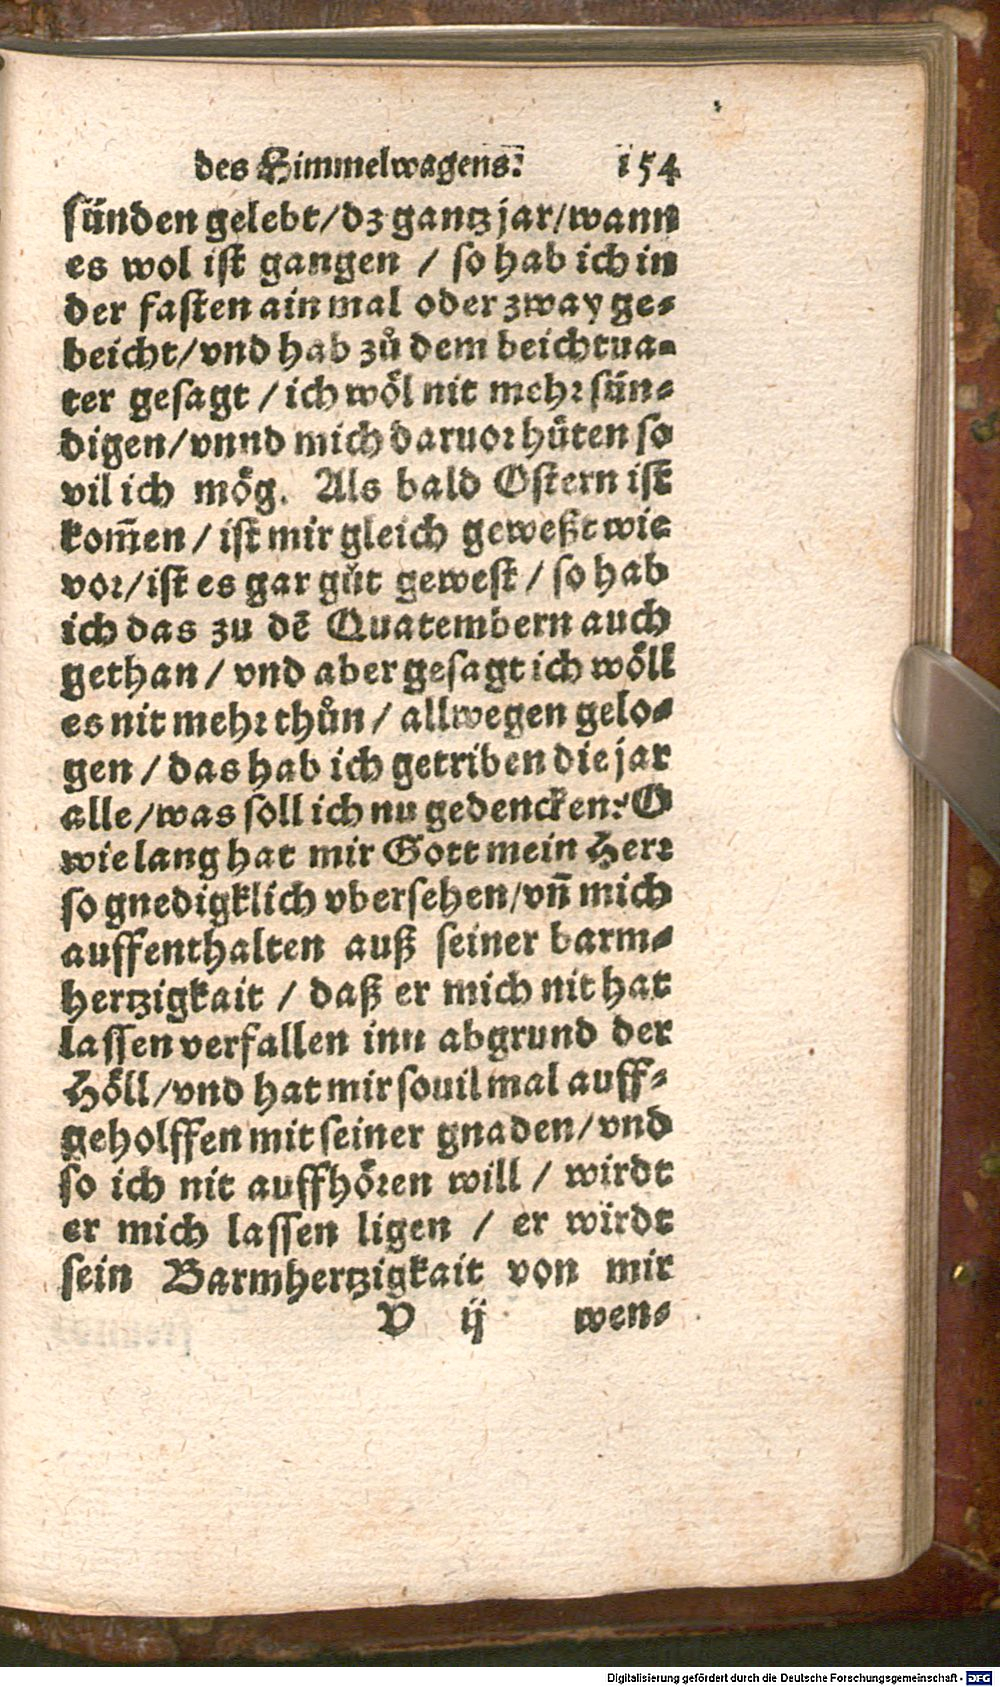 des Himmelwagens. 154
sünden gelebt/dz gantz jar/wann
es wol ist gangen / so hab ich in
der fasten ain mal oder zway ge-
beicht/vnd hab zů dem beichtua-
ter gesagt / ich wöl nit mehr sün-
digen/vnnd mich daruor hüten so
vil ich mög. Als bald Ostern ist
kom̃en / ist mir gleich geweßt wie
vor/ist es gar gůt gewest / so hab
ich das zu dẽ Quatembern auch
gethan / vnd aber gesagt ich wöll
es nit mehr thůn / allwegen gelo-
gen / das hab ich getriben die jar
alle/was soll ich nu gedencken? O
wie lang hat mir Gott mein Herr
so gnedigklich vbersehen/vñ mich
auffenthalten auß seiner barm-
hertzigkait / daß er mich nit hat
lassen verfallen inn abgrund der
Höll/vnd hat mir souil mal auff-
geholffen mit seiner gnaden/vnd
so ich nit auffhören will / wirdt
er mich lassen ligen / er wirdt
sein Barmhertzigkait von mir
V ij wen-
Digitalisierung gefördert durch die Deutsche Forschungsgemeinschaft - DFG